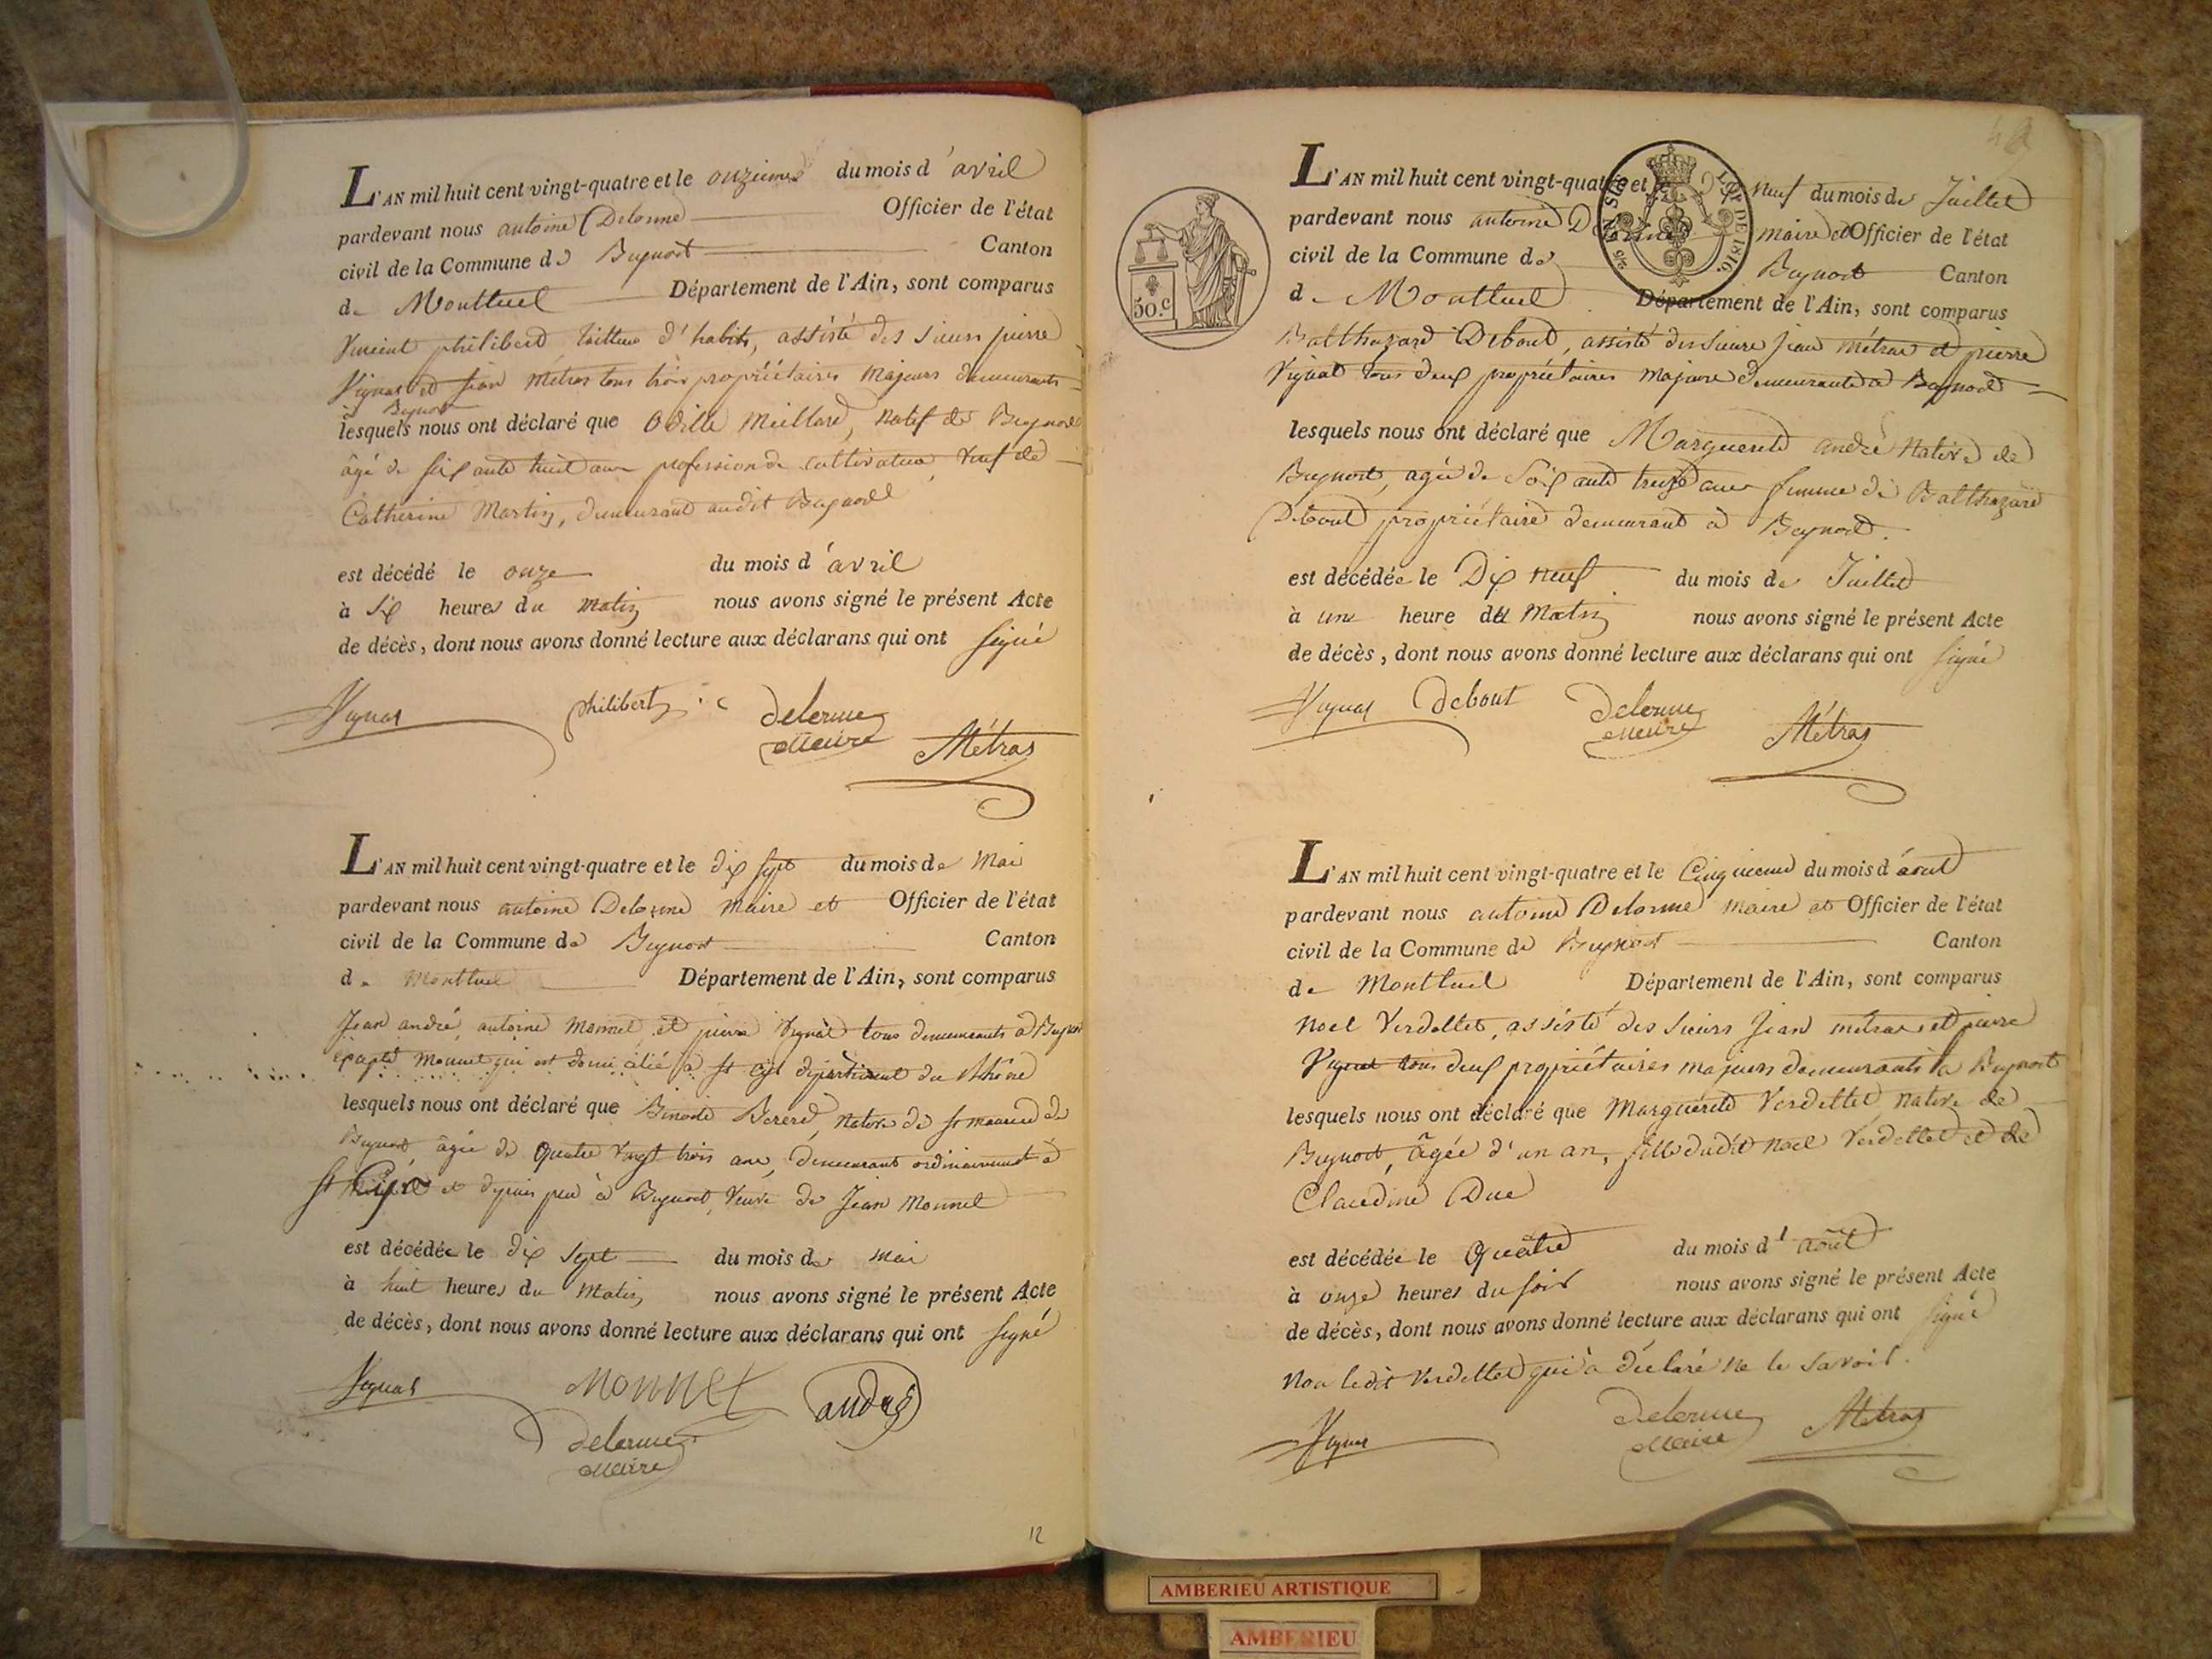 L'AN mil huit cent vingt-quatre et le onzieme du mois d'avril
pardevant nous antoine Delorme Officier de l'état
civil de la Commune de Beynost Canton
de Montluel Département de l'Ain, sont comparus
Vincent philibert tailleur d'habits, assisté des sieurs pierre
Vignat et Jean Métras tous trois propriétaires majeurs demeurants
à Beynost
lesquels nous ont déclaré que Odille Meillard, natif de Beynost
âgé de soixante huit ans profession de cultivateur, veuf de
Catherine Martin, demeurant audit Beynost
est décédé le onze du mois d'avril
à six heures du matin nous avons signé le présent Acte
de décès, dont nous avons donné lecture aux déclarans qui ont signé
Vignat philibert Delorme Métras
Maire
L'AN mil huit cent vingt-quatre et le dix sept du mois de Mai
pardevant nous antoine Delorme Maire et Officier de l'état
civil de la Commune de Beynost Canton
de Montluel Département de l'Ain, sont comparus
Jean andré, antoine Monnet, et pierre Vignat tous demeurants à Beynost
excepté Monnet qui est domicilié à St Cyr département du Rhône
lesquels nous ont déclaré que Benoite Bererd, native de St maurice de
Beynost âgée de quatre vingt trois ans, demeurant ordinairement à
St Cyr et depuis peu à Beynost, veuve de Jean Monnet
est décédée le dix sept du mois de mai
à huit heures du Matin nous avons signé le présent Acte
de décès, dont nous avons donné lecture aux déclarans qui ont signé
Vignat Monnet andré
Delorme
Maire
12
L'AN mil huit cent vingt-quatre et le Dix neuf du mois de Juillet
pardevant nous antoine Delorme maire et Officier de l'état
civil de la Commune de Beynost Canton
de Montluel Département de l'Ain, sont comparus
LOI DE 1816.
50.c
Balthazard Debout, assisté des sieurs Jean Métras et pierre
Vignat tous deux propriétaires majeurs demeurants à Beynost
lesquels nous ont déclaré que Marguerite andré Native de
Beynost, agée de soixante treize ans femme de Balthazard
Debout propriétaire demeurant à Beynost.
est décédée le Dix neuf du mois de Juillet
à une heure du Matin nous avons signé le présent Acte
de décès, dont nous avons donné lecture aux déclarans qui ont signé
Vignat Debout Delorme Métras
Maire
L'AN mil huit cent vingt-quatre et le Cinquieme du mois d'aout
pardevant nous antoine Delorme maire et Officier de l'état
civil de la Commune de Beynost Canton
de Montluel Département de l'Ain, sont comparus
Noel Verdellet, assisté des sieurs Jean métras et pierre
Vignat tous deux propriétaires majeurs demeurants à Beynost
lesquels nous ont déclaré que Marguérite Verdellet native de
Beynost, âgée d'un an, fille dudit Noel Verdellet et de
Claudine Duc
est décédée le Quatre du mois d'août
à onze heures du soir nous avons signé le présent Acte
de décès, dont nous avons donné lecture aux déclarans qui ont signé
Non ledit Verdellet qui a déclaré ne le savoir.
Vignat Delorme Métras
Maire
AMBERIEU ARTISTIQUE
AMBERIEU